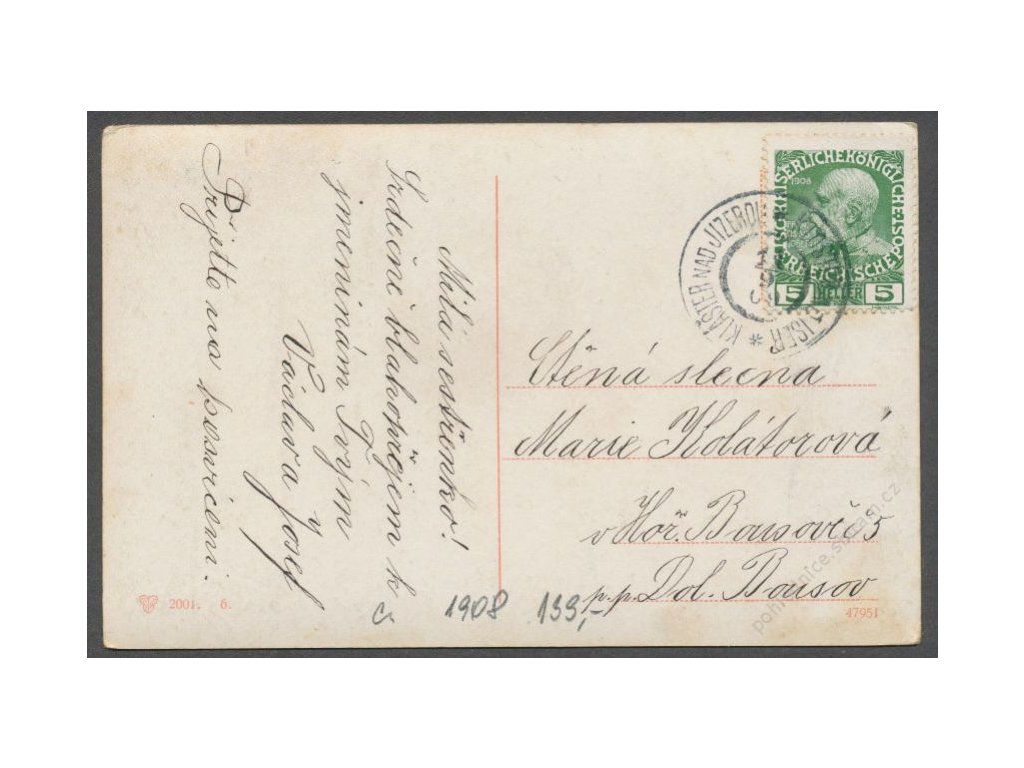 Milá sestřenko!
Srdečně blahopřejem k
jmeninám Tvým
Václav a Josef
Přijeďte na posvícení.
KAISERLICHE KÖNIGLICHE
ÖSTERREICHISCHE POST
1908
5 HELLER 5
KLÁŠTER NAD JIZEROU
ISER
Ctěná slečna
Marie Kolátorová
v Hoř. Bousově č 5
p.p. Dol. Bousov
2001. 6.
1908 139,-
47951
pohlednice.sberatel.cz